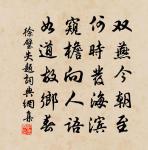 双燕今朝至
何时发海滨
窥檐向人语
如道故乡春
徐璧失题词典网集